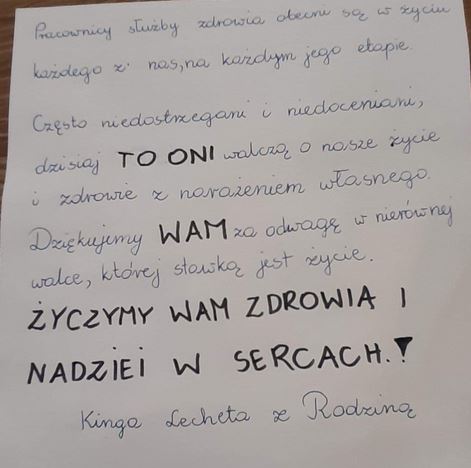 Pracownicy służby zdrowia obecni są w życiu
każdego z nas, na każdym jego etapie.
Często niedostrzegani i niedoceniani,
dzisiaj TO ONI walczą o nasze życie
i zdrowie z narażeniem własnego.
Dziękujemy WAM za odwagę w nierównej
walce, której stawką jest życie.
ŻYCZYMY WAM ZDROWIA I
NADZIEI W SERCACH.!
Kinga Lecheta z Rodziną